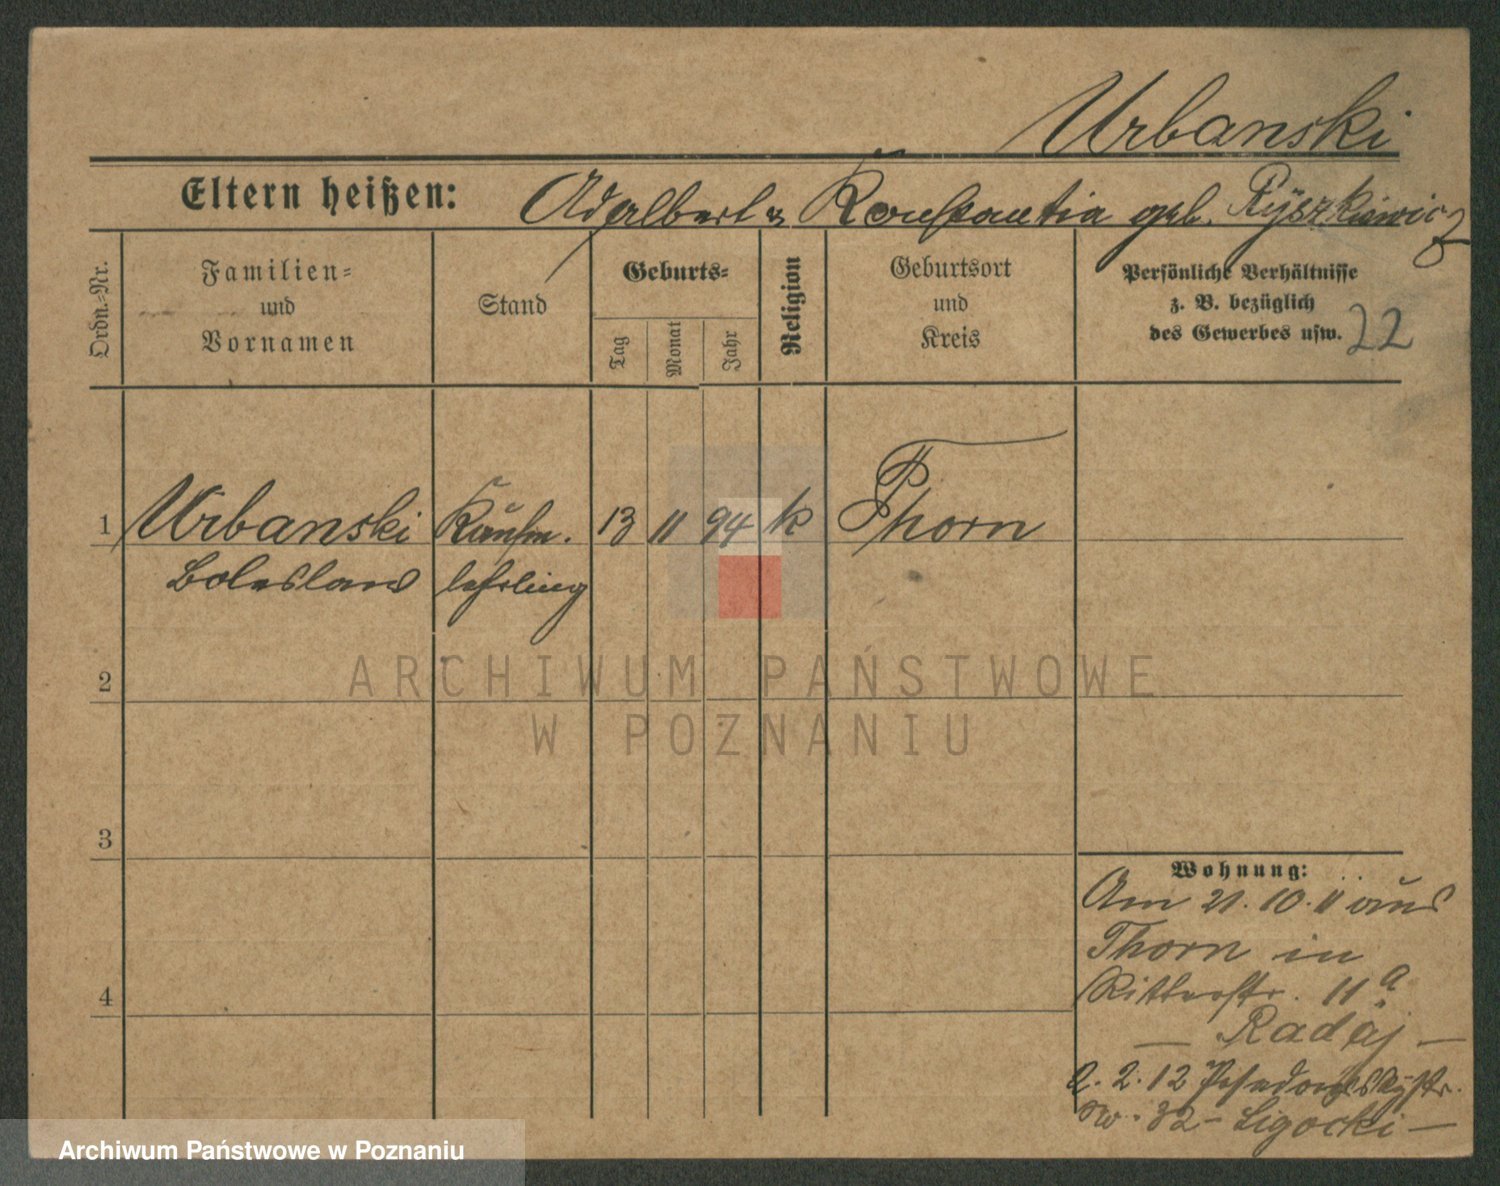 Urbanski
Eltern heißen: Adalbert u Konstantia geb. Ryszkiewicz
Ordn.-Nr.
Familien-
und
Vornamen
Stand
Geburts-
Tag
Monat
Jahr
Religion
Geburtsort
und
Kreis
Persönliche Verhältnisse
z. B. bezüglich
des Gewerbes usw. 22
1 Urbanski Kaufm. 13 11 94 k Thorn
Boleslaus lehrling
2
ARCHIWUM PAŃSTWOWE
W POZNANIU
3
Wohnung:
Am 21. 10. 11 aus
Thorn in
4 Ritterstr. 11a
— Radaj —
2. 2. 12
32 - Ligocki —
Archiwum Państwowe w Poznaniu